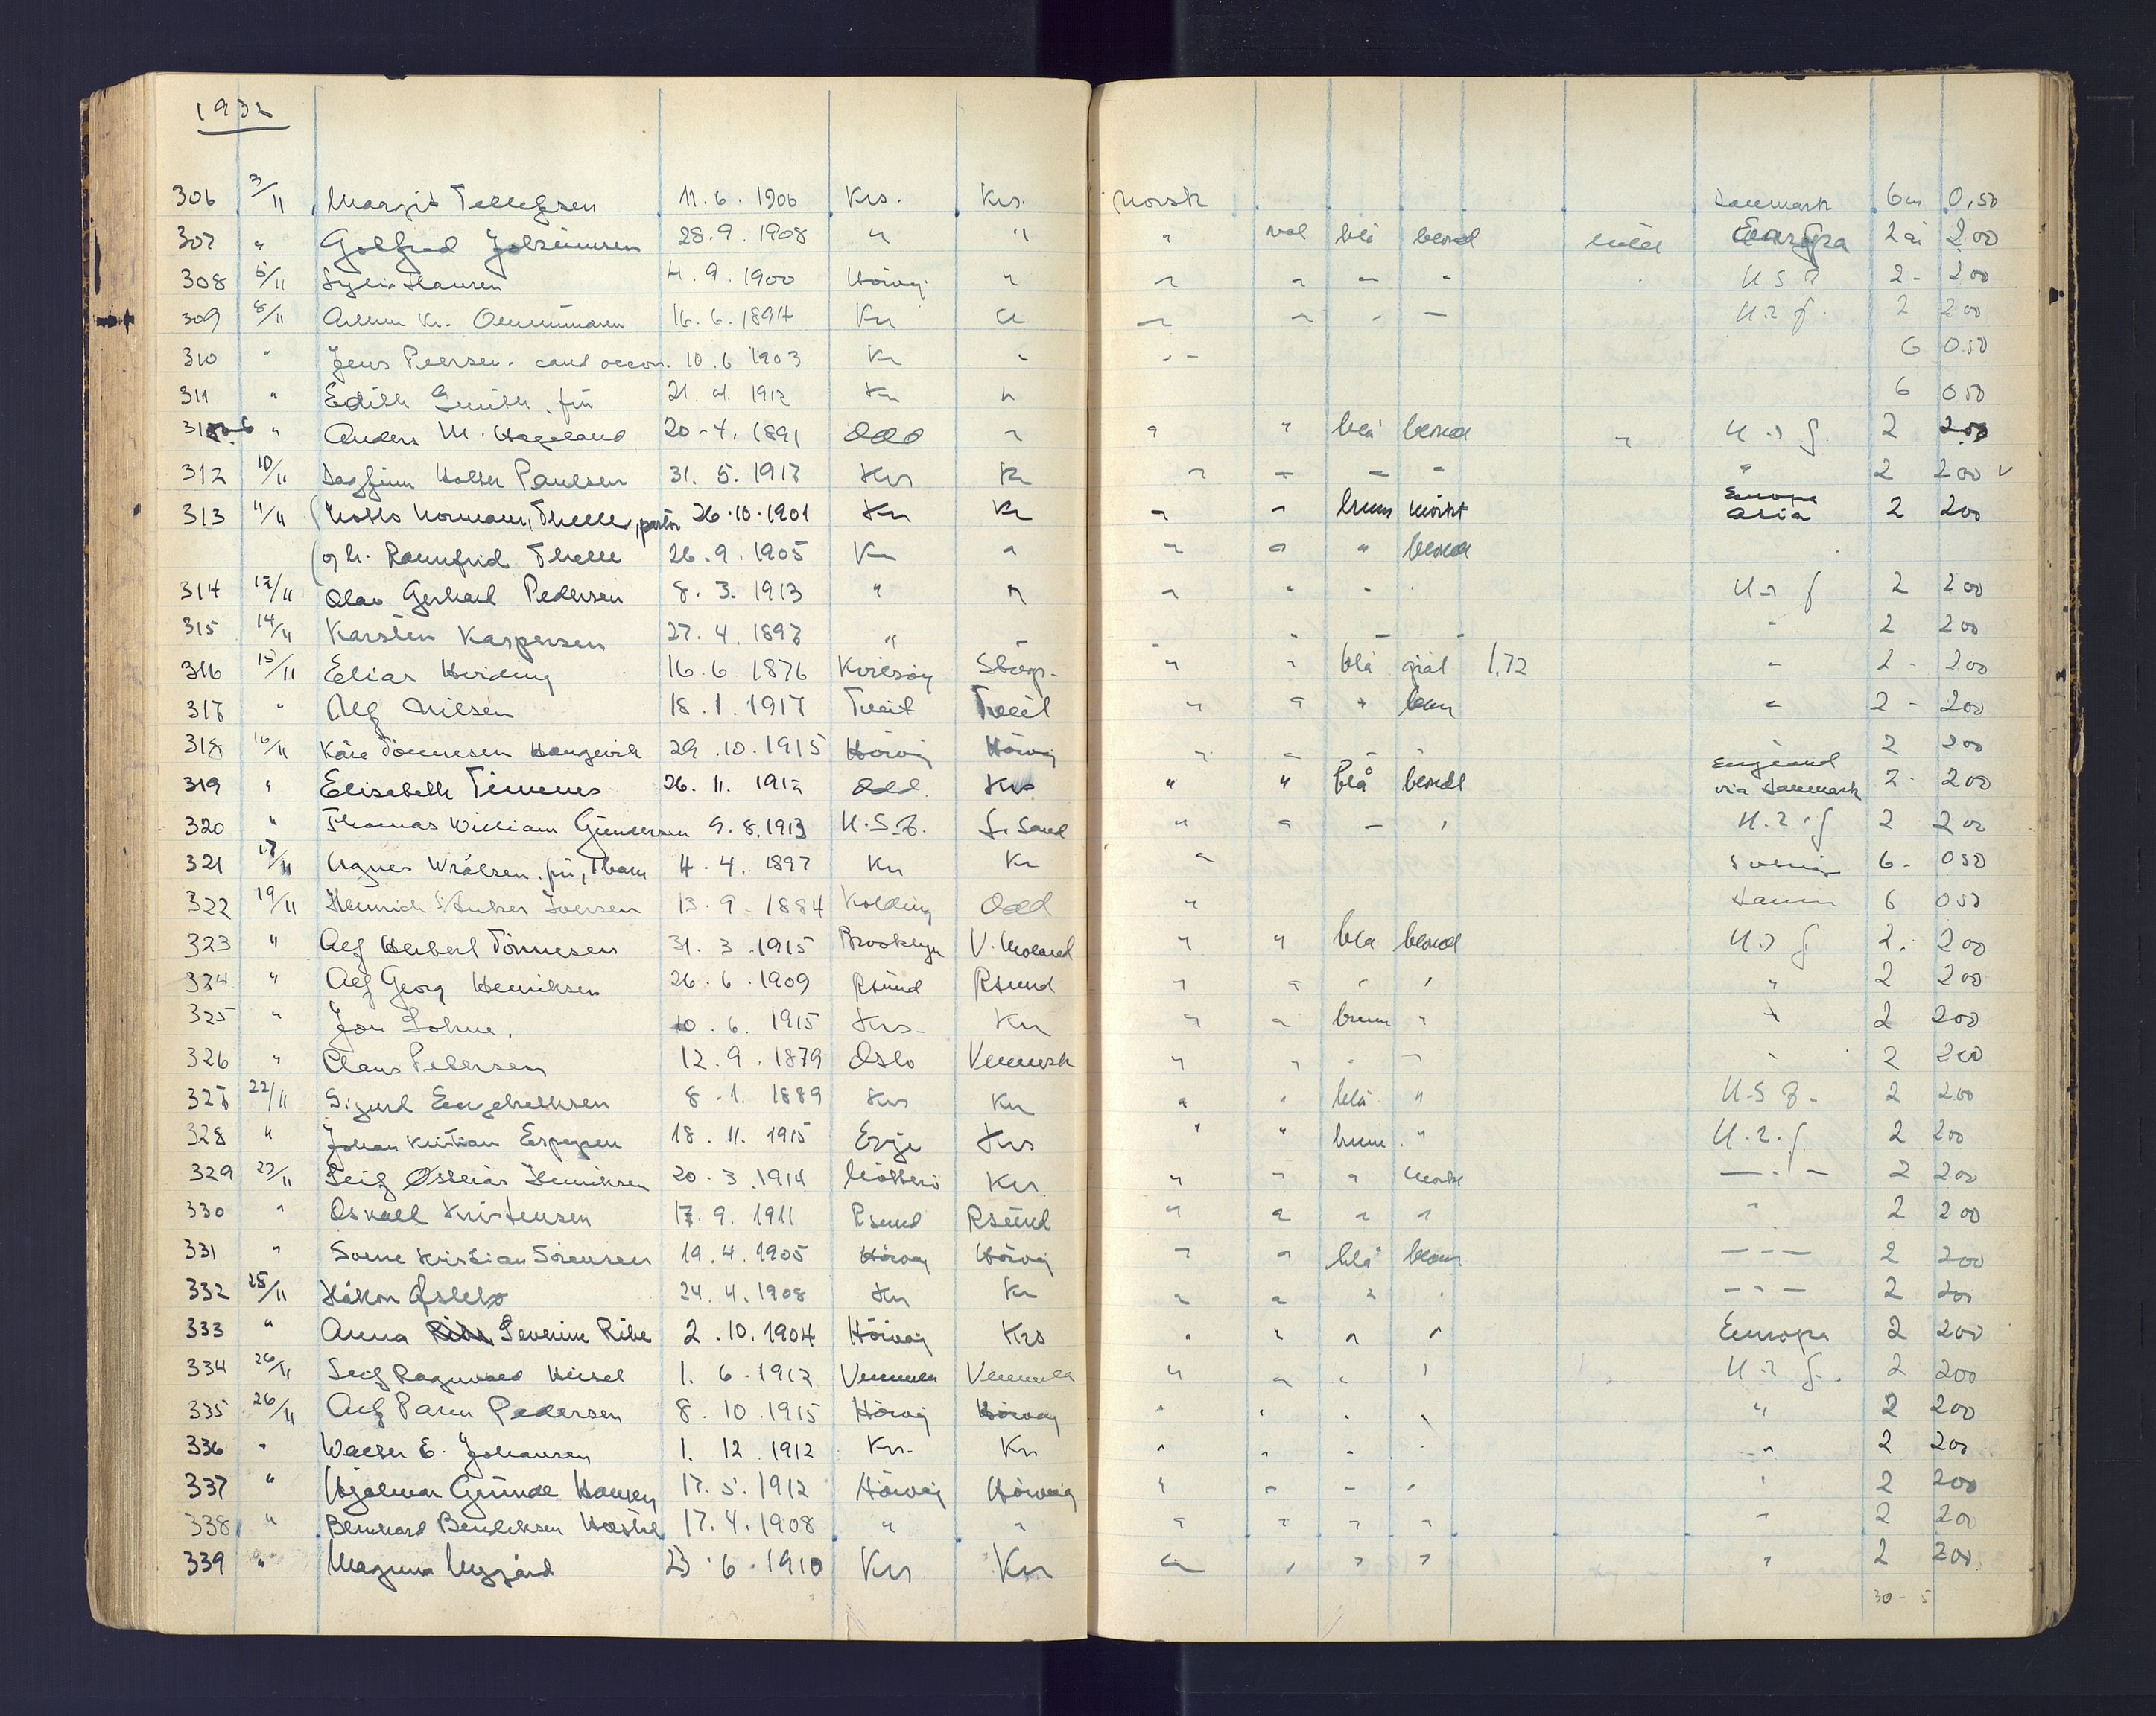 1932
306 3/11 Margit Tellefsen 11.6.1906 Krs. Krs. norsk Danmark 6 m 0,50
307 " Golfred 28.9.1908 " " " oval blå blond Europa 2 år 2 00
308 5/11 Hansen 4.9.1900 Höivåg " " " - - 2 - 2 00
309 8/11 Kr. 16.6.1894 Kr " " - - U.r.f. 2 2 00
310 " Jens Petersen. cand oecon. 10.6 1903 Kr " " - 6 0 50
311 " Edith Smith, frü 21. 1912 Kr " 6 0 50
" Anders M. Hageland 20-4.1891 Odd " " " blå blond " U.r.f. 2 2 00
312 10/11 Dagfinn Holter Paulsen 31.5.1913 Krs Kr " - - - " 2 2 00 v
313 11/11 (Notto Normann Thelle, pastor 26.10.1901 Kr Kr " - brun mörkt Europa Asia 2 2 00
(og h. Rannfrid Thelle 26.9.1905 Kr " " " " blond
314 12/11 Olav Gerhard Pedersen 8.3.1913 " " " " - . U.r.f. 2 2 00
315 14/11 Karsten Kaspersen 27.4.1897 " - - - - - " 2 2 00
316 15/11 Elias Hviding 16.6 1876 Kvitsöy " " blå grått 1,72 " 2 - 2 00
317 " Alf Nilsen 18.1.1917 Tveit Tveit " " " blon " 2 - 2 00
318 16/11 Kåre Tönnesen Haugevik 29.10.1915 Höivåg Höivåg " - - - - 2 2 00
319 " Elisabeth 26.11.1912 Odd. Krs " " blå blondt England via Danmark 2 - 2 00
320 " Thomas William Gundersen 9.8.1913 U.S.A. " " - ' U.r.f 2 2 00
321 17/11 Agnes Wråtsen, frü, 4.4.1897 Kr Kr " Sverig 6 - 0 50
322 19/11 Henrich Iversen 13.9-1884 Kolding Odd " Danm 6 0 50
323 " Alf Herbert Tönnesen 31.3.1915 Brooklyn V. Moland " " blå blond U.r.f 2. 2 00
324 " Alf Georg Henriksen 26.6.1909 Rsund Rsund " " ' ' " 2 2 00
325 " Jon Lohne. 10.6.1915 Krs- Kr " " brun " " 2 2 00
326 " Claus Petersen 12.9.1879 Oslo Vennesl " " - - " 2 2 00
327 22/11 Sigurd Engebrethsen 8.1.1889 Krs Kr " " blå " U.S.A. 2 2 00
328 " Johan Kristian Espegren 18.11.1915 Evje Krs " " brun " U.r.f. 2 2 00
329 23/11 Leif Henriksen 20.3.1914 Kr. " " " mörk - . - 2 2 00
330 " Osvall Kristensen 17.9.1911 Rsund Rsund " " " " " 2 2 00
331 " Sverre Kristian Sörensen 19.4.1905 Höivåg Höivåg " " blå blond --- 2 2 00
332 25/11 Håkon 24.4.1908 Kr Kr " " " ' - " - 2 2 00
333 " Anna Severine Ribe 2.10.1904 Höivåg Krs " " " " Europa 2 2 00
334 26/11 Leif Ragnvald 1.6.1912 Vennesla Vennesla " " " ' U.r.f. 2 2 00
335 26/11 Alf Parm Pedersen 8.10.1915 Höivåg Höivåg ' ' . ' " 2 2 00
336 " Walter E. Johansen 1.12.1912 Kr. Kr ' ' - . " 2 2 00
337 " Hjalmar Gunde Hansen 17.5.1912 Höivåg Höivåg " " - ' ' 2 2 00
338 " Bernhard Bendiksen 17.4.1908 " " " " " " " 2 2 00
339 " Magnus Nygård 23.6.1910 Kr Kr " ' ' ' ' 2 2 00
30 - 5